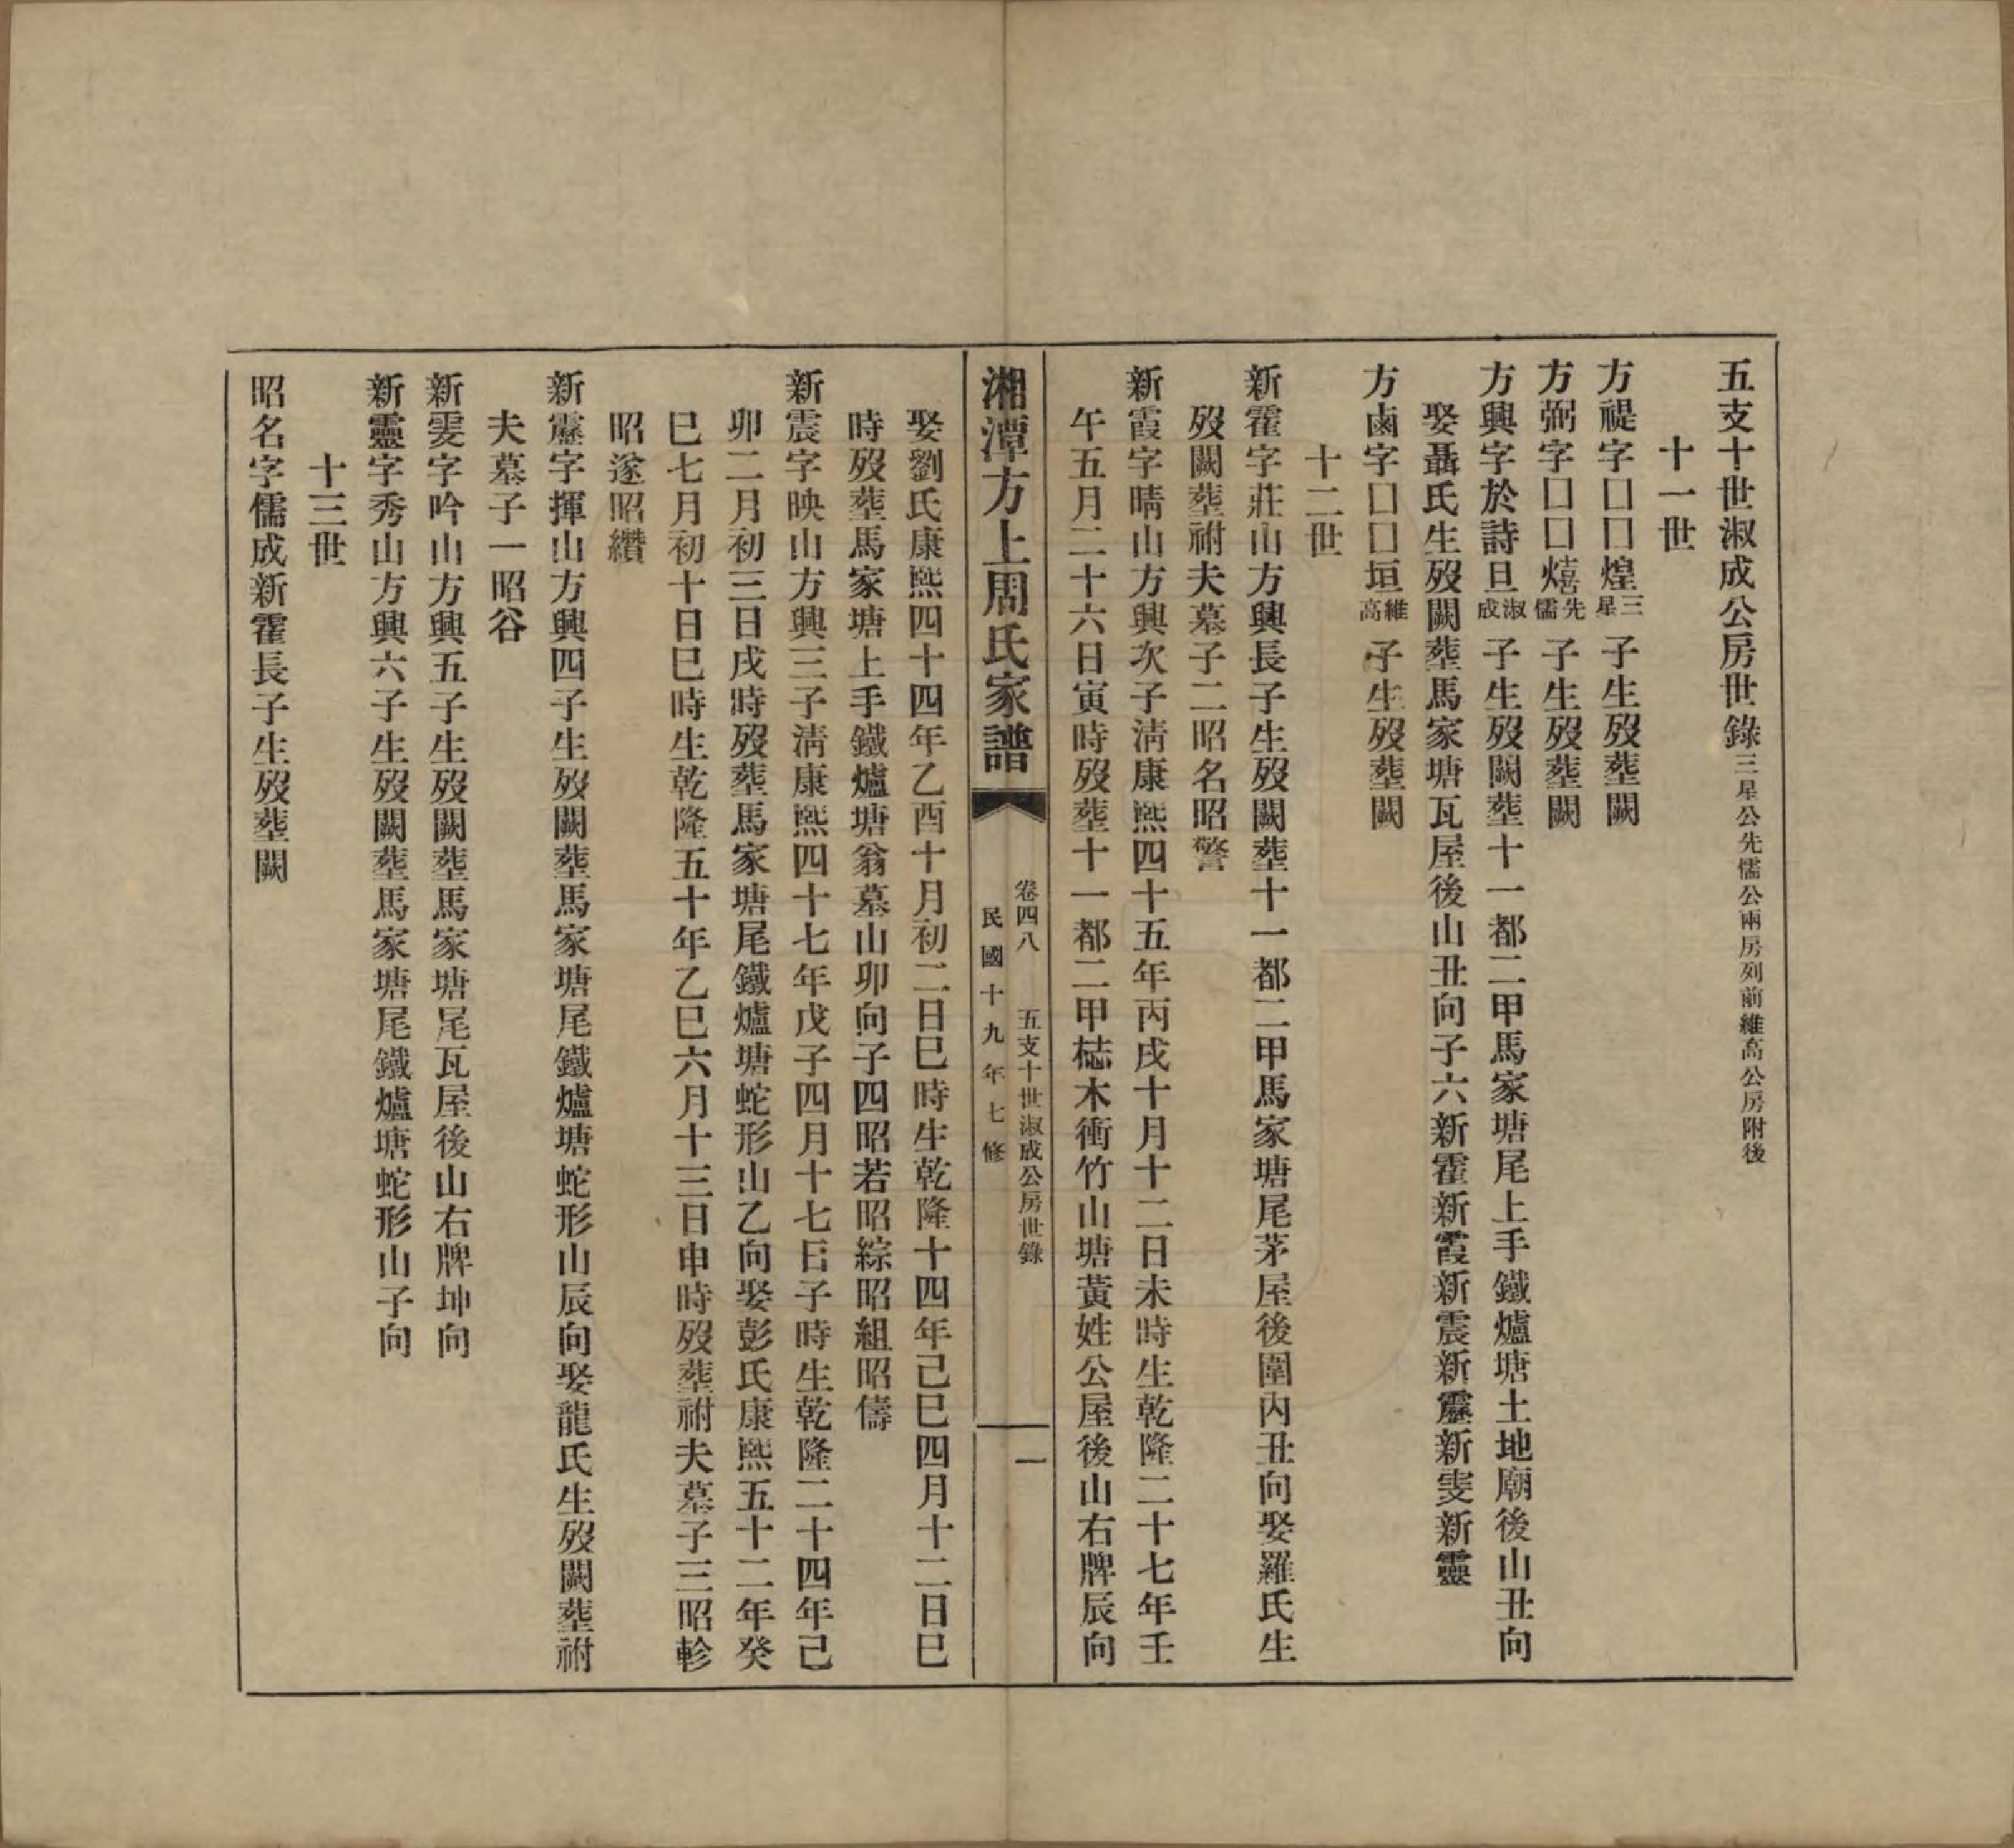 五支十世淑成公房世錄三星公先儒公兩房列前維高公房附後
十一世
方禔字囗囗煌三星子生歿葬闕
方弼字囗囗熺先儒子生歿葬闕
方興字於詩旦淑成子生歿闕葬十一都二甲馬家塘尾上手鐵爐塘土地廟後山丑向
娶聶氏生歿闕葬馬家塘瓦屋後山丑向子六新霍新霞新震新靂新雯新靈
方鹵字囗囗垣維高子生歿葬闕
十二世
新霍字莊山方興長子生歿闕葬十一都二甲馬家塘尾茅屋後圍內丑向娶羅氏生
歿闕葬祔夫墓子二昭名昭警
新霞字晴山方興次子清康熙四十五年丙戌十月十二日未時生乾隆二十七年壬
午五月二十六日寅時歿葬十一都二甲梽木衝竹山塘黃姓公屋後山右牌辰向
湘潭方上周氏家譜
卷四八 五支十世淑成公房世錄 一
民國十九年七修
娶劉氏康熙四十四年乙酉十月初二日巳時生乾隆十四年己巳四月十二日巳
時歿葬馬家塘上手鐵爐塘翁墓山卯向子四昭若昭綜昭組昭儔
新震字映山方興三子清康熙四十七年戊子四月十七日子時生乾隆二十四年己
卯二月初三日戌時歿葬馬家塘尾鐵爐塘蛇形山乙向娶彭氏康熙五十二年癸
巳七月初十日巳時生乾隆五十年乙巳六月十三日申時歿葬祔夫墓子三昭軫
昭邃昭纘
新靂字揮山方興四子生歿闕葬馬家塘尾鐵爐塘蛇形山辰向娶龍氏生歿闕葬祔
夫墓子一昭谷
新雯字吟山方興五子生歿闕葬馬家塘尾瓦屋後山右牌坤向
新靈字秀山方興六子生歿闕葬馬家塘尾鐵爐塘蛇形山子向
十三世
昭名字儒成新霍長子生歿葬闕